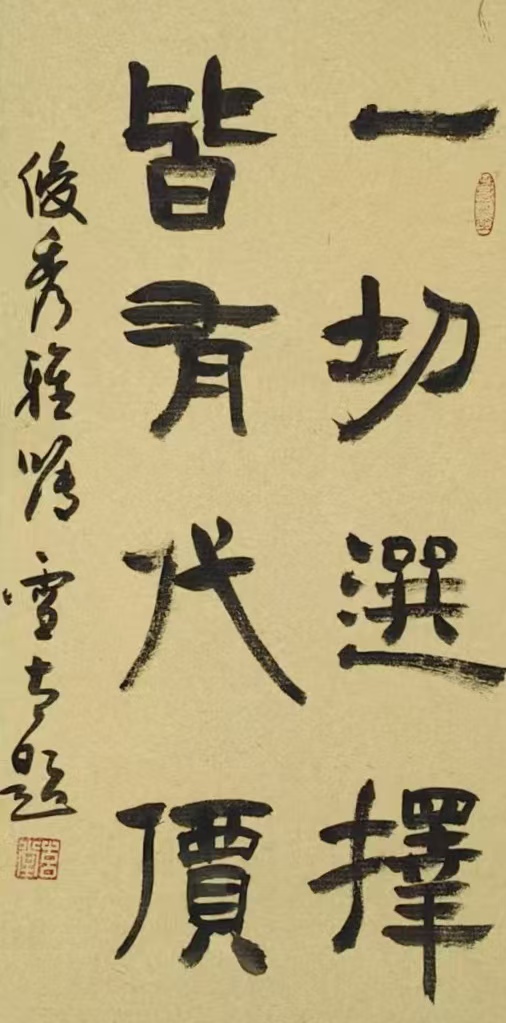 一切選擇
皆有代價
俊秀雅嘱 雪古題